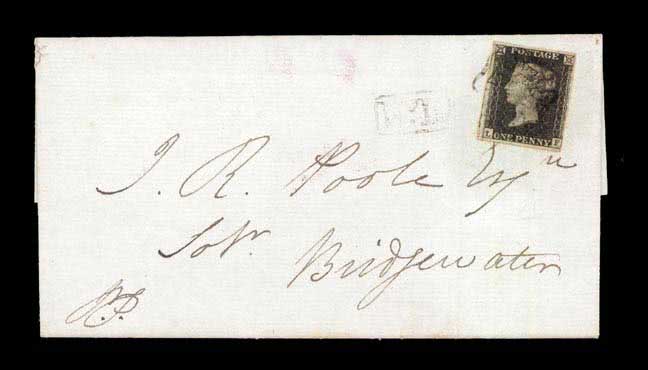 POSTAGE
ONE PENNY
J. R. Poole Esqr
Solr.
Bridgewater